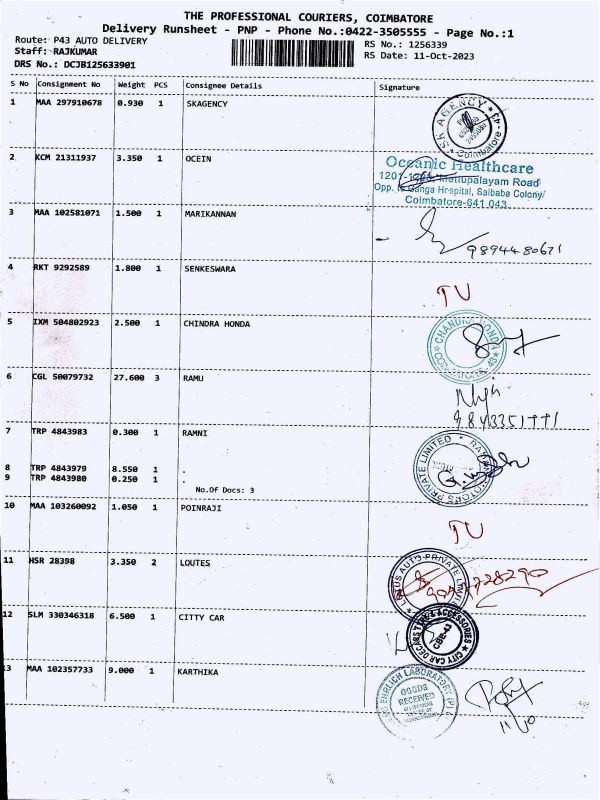 THE PROFESSIONAL COURIERS, COIMBATORE
Delivery Runsheet - PNP - Phone No.:0422-3505555 - Page No.:1
Route: P43 AUTO DELIVERY
Staff: RAJKUMAR
DRS No.: DCJB125633901
RS No.: 1256339
RS Date: 11-Oct-2023
S No Consignment No Weight PCS Consignee Details Signature
1 MAA 297910678 0.930 1 SKAGENCY
SK AGENCY * 43
Coimbatore
2 KCM 21311937 3.350 1 OCEIN
Oceanic Healthcare
Mettupalayam Road
Opp. to Ganga Hospital, Saibaba Colony
Coimbatore-641 043
3 MAA 102581071 1.500 1 MARIKANNAN
4 RKT 9292589 1.800 1 SENKESWARA
TU
5 IXM 504802923 2.500 1 CHINDRA HONDA
CHANDRA HONDA
6 CGL 50079732 27.600 3 RAMU
7 TRP 4843983 0.300 1 RAMNI
8 TRP 4843979 8.550 1 .
9 TRP 4843980 0.250 1 .
No.Of Docs: 3
MOTORS PRIVATE LIMITED
10 MAA 103260092 1.050 1 POINRAJI
TU
11 HSR 28398 3.350 2 LOUTES
LOTUS AUTO PRIVATE LIMITED
12 SLM 330346318 6.500 1 CITTY CAR
CITY CAR DECARSTERS & ACCESSORIES
CBE-43
13 MAA 102357733 9.000 1 KARTHIKA
EHRLICH LABORATORY (P)
GOODS
RECEIVED
11/10